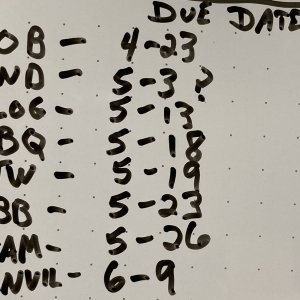 DUE DATE
OB - 4-23
ND - 5-3 ?
LOG - 5-13
BQ - 5-18
TW - 5-19
BB - 5-23
AM - 5-26
NVIL - 6-9